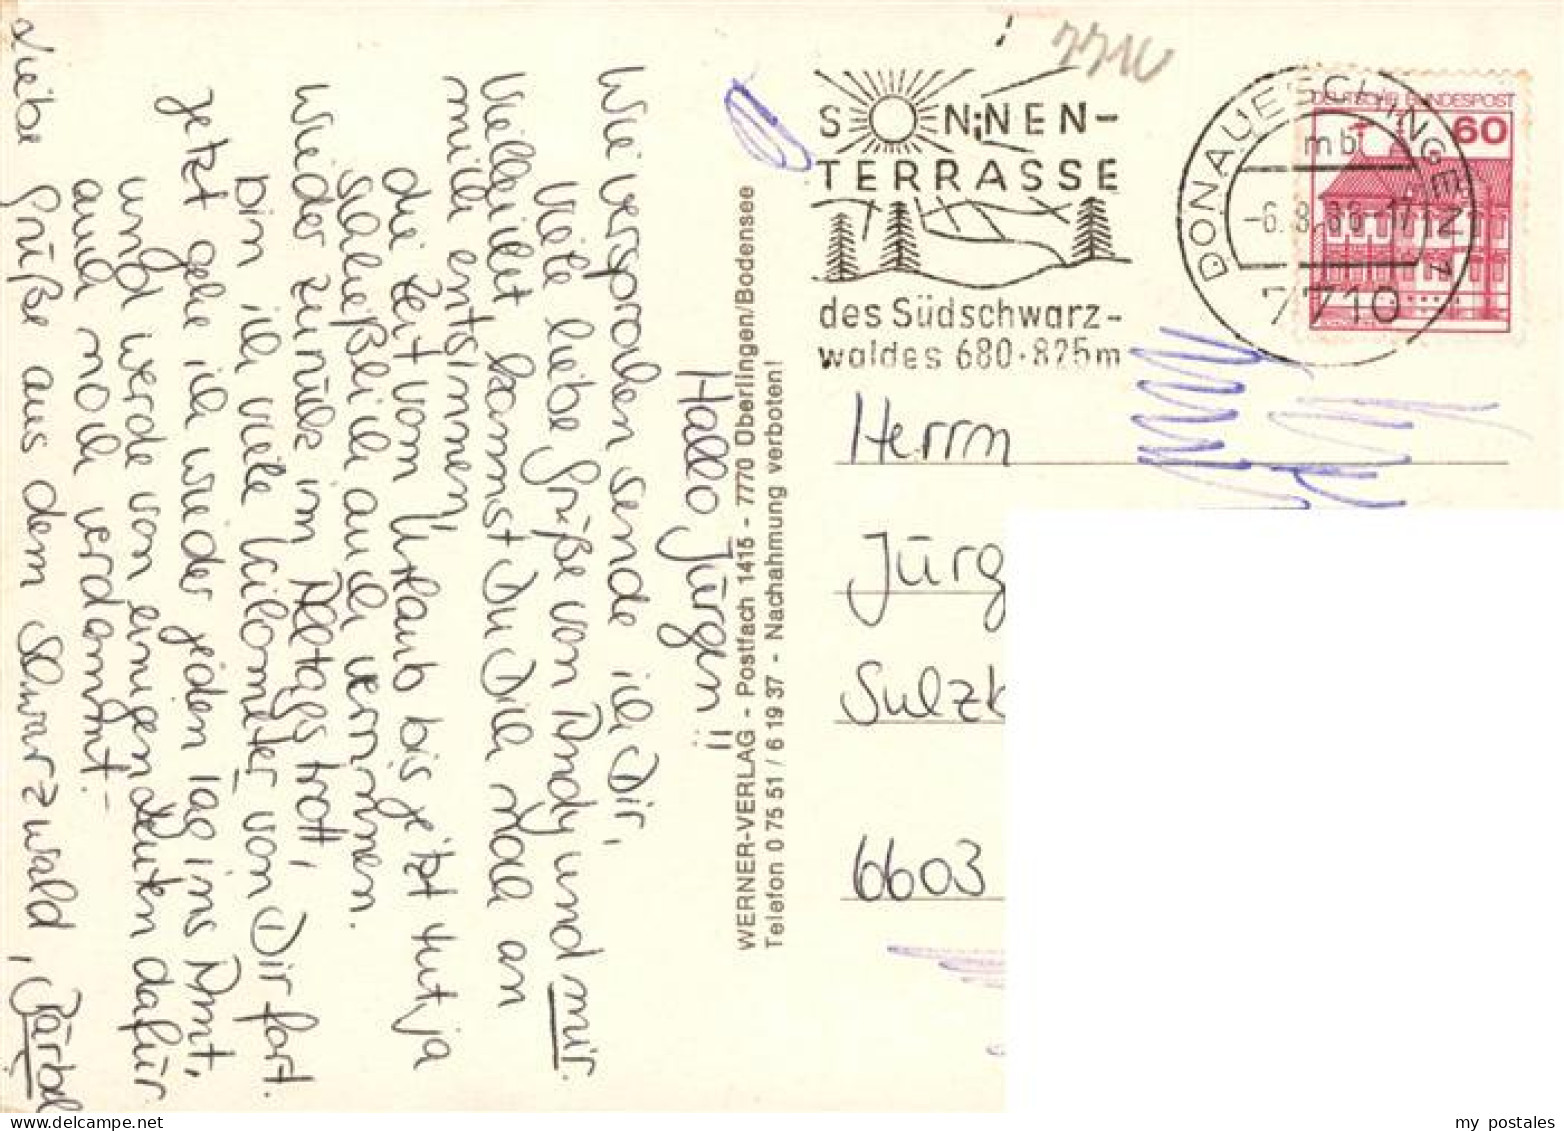 Hallo Jürgen!!
Wie versprochen sende ich Dir,
viele liebe Grüße von Andy und mir.
Vielleicht kannst Du Dich noch an
mich entsinnen,
die Zeit vom Urlaub bis jetzt tut ja
schließlich auch verrinnen.
Wieder zurück im Alltagstrott,
bin ich viele Kilometer von Dir fort.
Jetzt gehe ich wieder jeden Tag ins Amt,
und werde von einigen Leuten dafür
auch noch verdammt.
Liebe Grüße aus dem Schwarzwald, Bärbel
WERNER-VERLAG - Postfach 1415 - 7770 Überlingen/Bodensee
Telefon 0 75 51 / 6 19 37 - Nachahmung verboten!
7710
SONNEN-
TERRASSE
des Südschwarz-
waldes 680-825m
DONAUESCHINGEN
mb
-6.8.86-17
7710
DEUTSCHE BUNDESPOST
60
Herrn
Jürg
Sulzb
6603
my postales